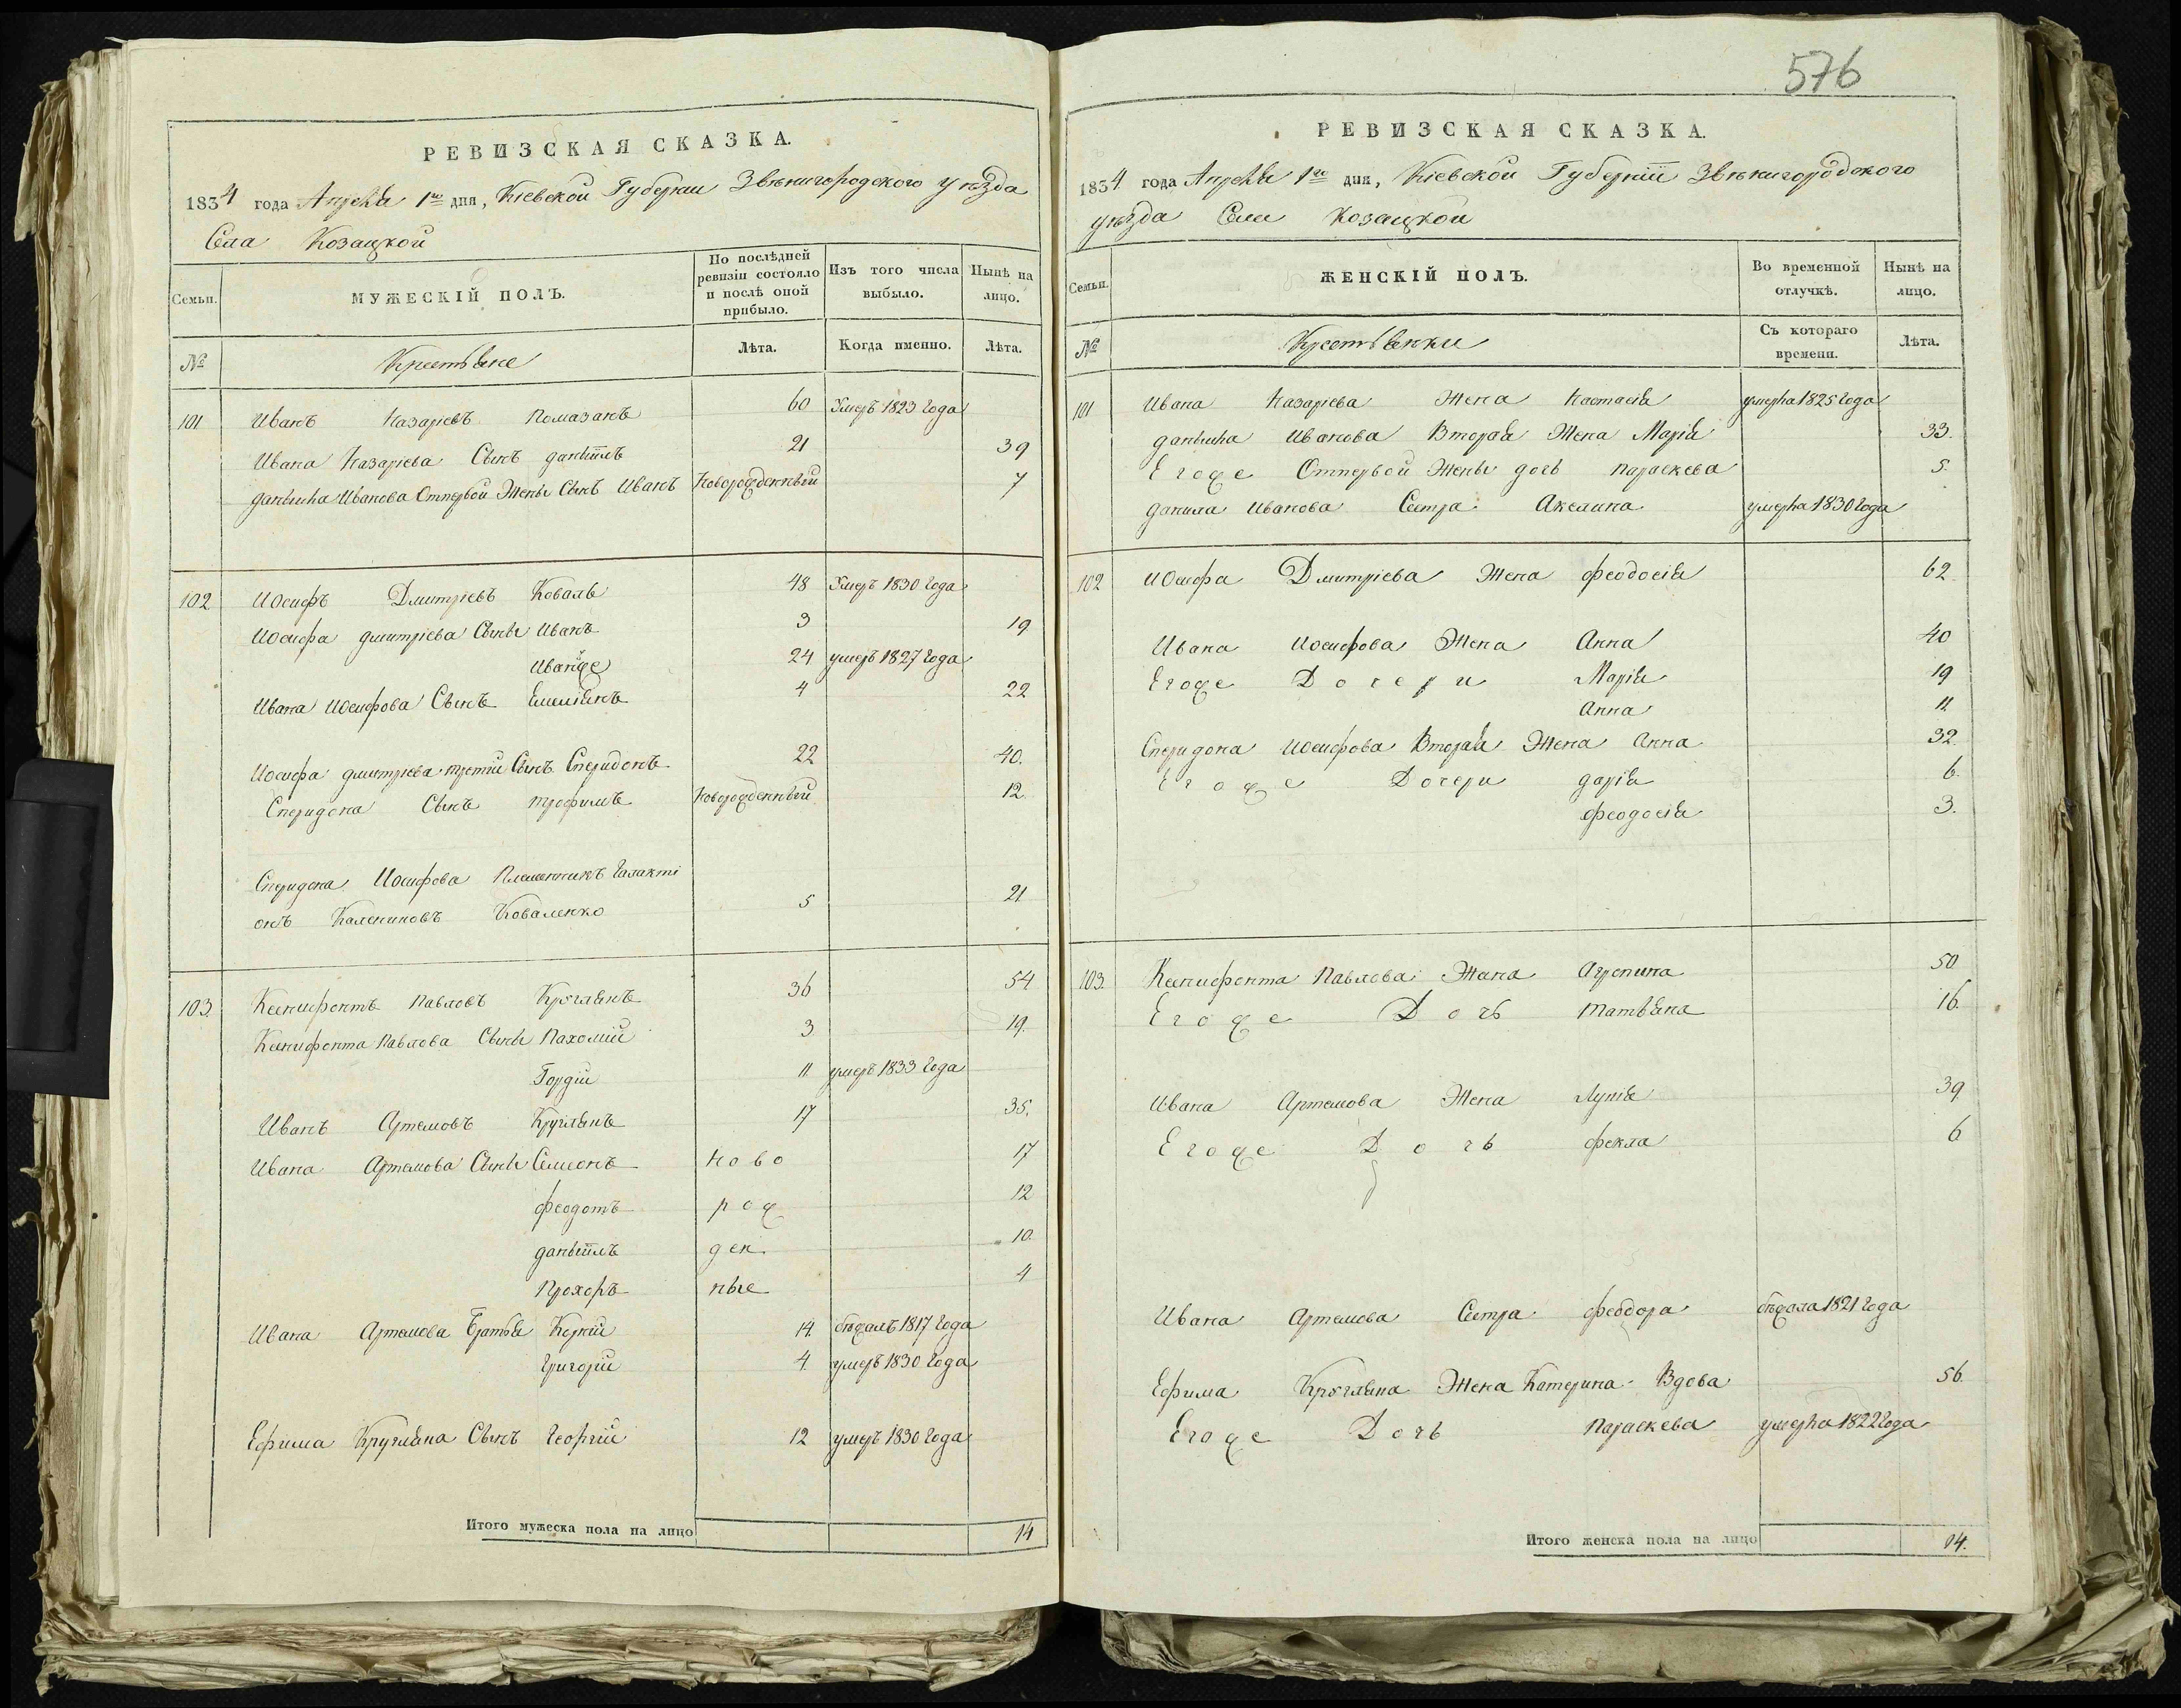 РЕВИЗСКАЯ СКАЗКА.
1834 года Апреля 1го дня, Кіевской Губернии Звенигородского уезда
Села Козацкой
Семьи.
МУЖЕСКІЙ ПОЛЪ.
По послѣдней ревизіи состояло и послѣ оной прибыло.
Изъ того числа выбыло.
Нынѣ на лицо.
№
Крестьяне
Лѣта.
Когда именно.
Лѣта.
101 Иванъ Назаріевъ Помазанъ 60 Умеръ 1823 года
Ивана Назаріева Сынъ даніилъ 21 39
данила Иванова Отпервой Жены Сынъ Иванъ Новорожденный 7
102 Иосифъ Дмитріевъ Коваль 48 Умеръ 1830 года
Иосифа дмитріева Сыны Иванъ 3 19
Иванже 24 умеръ 1827 года
Ивана Иосифова Сынъ Емеліянъ 4 22
Иосифа дмитріева третий Сынъ Спиридонъ 22 40.
Спиридона Сынъ трофимъ Новорожденный 12.
Спиридона Иосифова Племенникъ Галакті
онъ Калениковъ Коваленко 5 21
103. Ксенифонтъ Павловъ Круглянъ 36 54
Ксенифонта Павлова Сыны Пахомий 3 19.
Гордій 11. умеръ 1833 года
Иванъ Артемовъ Круглянъ 17 35.
Ивана Артемова Сыны Семионъ ново 17
феодотъ рож 12
даніилъ ден 10.
Прохоръ ные 4
Ивана Артемова Братья Корній 14. бежалъ 1817 года
Григорій 4. умеръ 1830 года
Ефима Кругляна Сынъ Георгій 12 умеръ 1830 года
Итого мужеска пола на лицо 14
576
РЕВИЗСКАЯ СКАЗКА.
1834 года Апреля 1го дня, Кіевской Губерніи Звенигородского
уезда Села Козацкой
Семьи.
ЖЕНСКІЙ ПОЛЪ.
Во временной отлучкѣ.
Нынѣ на лицо.
№
Крестьянки
Съ котораго времени.
Лѣта.
101 Ивана Назаріева Жена Настасія умерла 1825 года
данила Иванова Вторая Жена Марія 33.
Егоже Отпервой Жены дочь параскева 5.
данила Иванова Сестра Акелина умерла 1830 года
102 Иосифа Дмитріева Жена феодосія 62.
Ивана Иосифова Жена Анна 40
Егоже Дочери Марія 19
Анна 11.
Спиридона Иосифова Вторая Жена Анна 32.
Егоже Дочери дарія 6.
феодосія 3.
103. Ксенифонта Павлова Жена Агропина 50.
Егоже Дочь татьяна 16.
Ивана Артемова Жена Лукія 39
Егоже Дочь фекла 6
Ивана Артемова Сестра феодора бежала 1821 года
Ефима Кругляна Жена Катерина Вдова 56.
Егоже Дочь параскева умерла 1822 года
Итого женска пола на лицо 14.